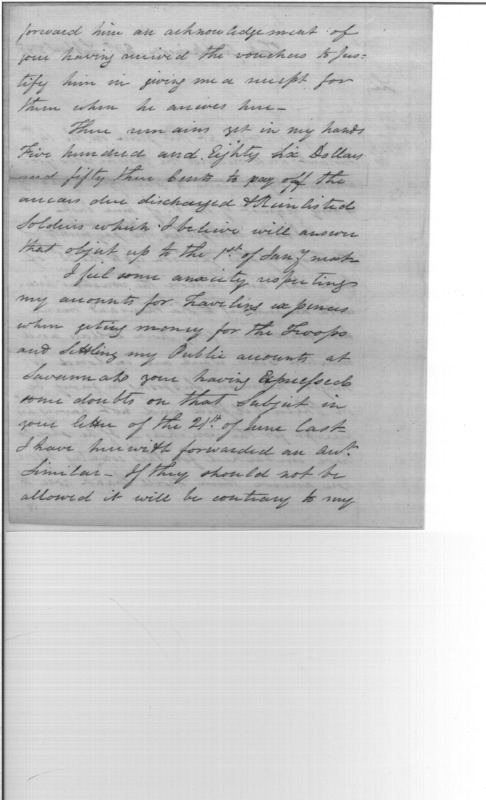 forward him an acknowledgement of
your having received the vouchers to jus=
tify him in giving me a receipt for
them when he arrives here -
There remains yet in my hands
Five hundred and Eighty Six Dollars
and fifty three Cents to pay off the
arrears due discharged & Reinlisted
Soldiers which I believe will answer
that object up to the 1st of Jany next
I feel some anxiety respecting
my accounts for traveling expences
when geting money for the Troops
and Settling my Public accounts at
Savannah your having Expressed
some doubts on that Subject in
your letter of the 21st of June last
I have herewith forwarded an Acct.
Similar - If they should not be
allowed it will be contrary to my